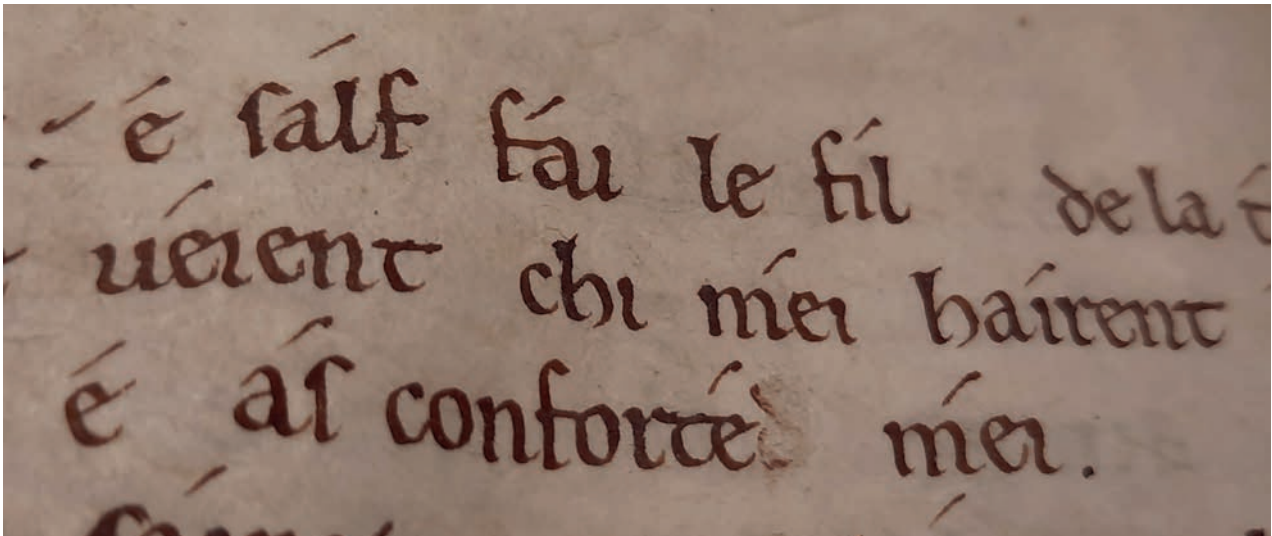 é salf fái le fil de la
uéient chi méi haírent
é ás conforté méi.